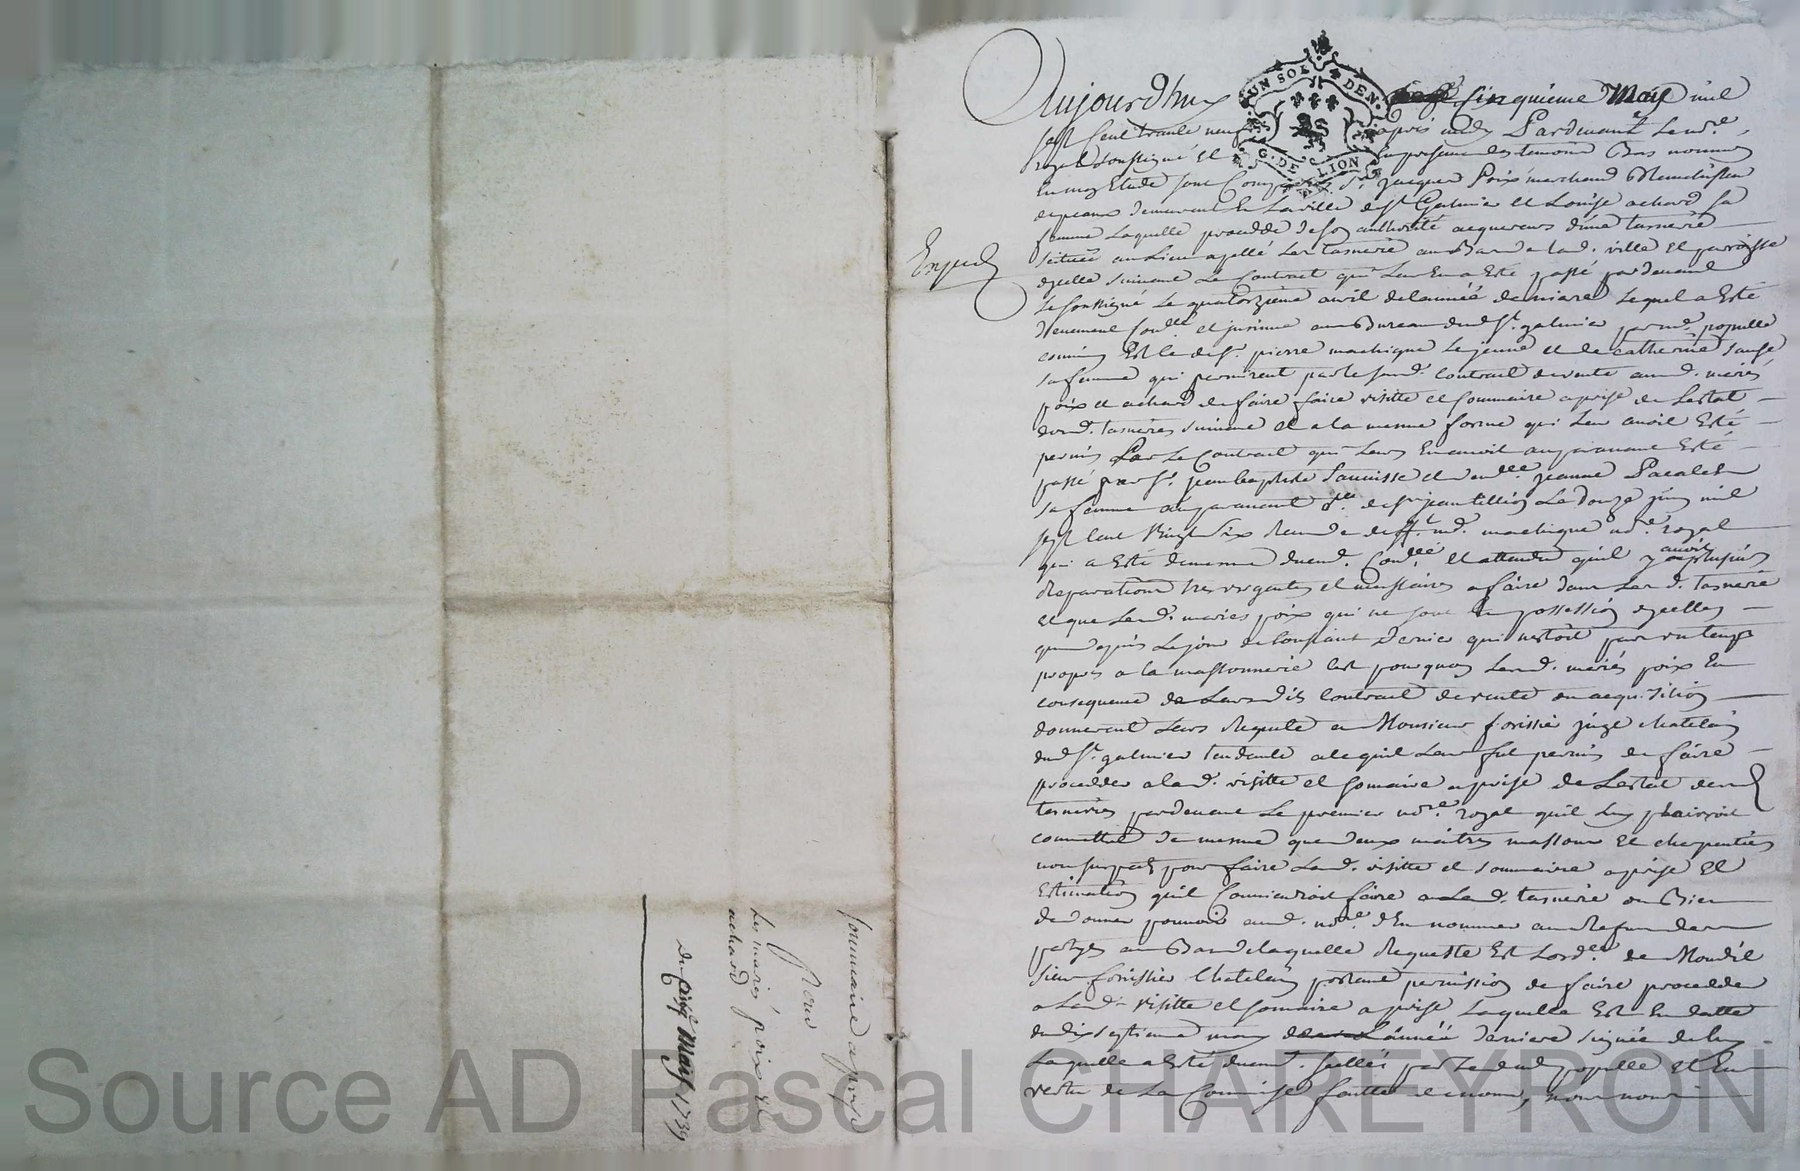 Sommaire aprise
Pour
Les mariés poix et
achard
du cinq may 1739
Expedié
Aujourd'huy cinquieme May mil
sept cent trante neuf apres midy Pardevant Le no.re
royal soussigné et en presence des temoins Bas nommés
En mon Etude sont Comparus s.r Jacques Poix marchand
de peaux demeurant En La ville de s.t Galmier et Louise achard sa
femme Laquelle procedde de son authorité acquereurs d'une tannerie
scituée au Lieu apellé Les tanneries au Bas de lad. ville et parroisse
d'jcelle suivant Le Contract qui Leur En a Esté passé pardevant
Le soussigné Le quatorzieme avril de L'année derniere Lequel a Esté
duement et jnsinué au Bureau dud. s.t galmier par m.e populle
commis Est le de s.r pierre machique Le jeune et de catherine
sa femme qui permirent par le susd. Contract de vente aud. mariés
poix et achard de faire faire visitte et sommaire aprise de L'estat
desd. tanneries suivant et a la mesme forme qui Leur avoit Esté
permis Par Le Contract qui Leurs En avoit auparavant Esté
passé par s.r jean baptiste et jeanne
sa femme auparavant de s.r jean Le douze juin mil
sept cent Vingt six Receu m.e machique no.re royal
qui a Esté et attendu qu'il y avoit plusieurs
Reparations tres urgentes et necessaires a faire dans Lesd. tanneries
et que Lesd. mariés poix qui ne sont En possession d'jcelles
que depuis Le jour de Toussaint dernier qui n'estoit pas un temps
propre a la massonnerie c'est pourquoy Lesd. mariés poix En
consequence de Leurs dits Contract de vente ou acquisition
donnerent Leurs Requete a Monsieur forissier juge chatelain
dud. s.t galmier tendante a ce qu'il Leur fut permis de faire
procedder a lad. visitte et somaire aprise de L'estat desd.
tanneries pardevant Le premier no.re royal qu'il Luy plairroit
commettre de mesme que deux maitres massons et charpentiers
non suspects pour faire Lad. visitte et sommaire aprise et
Estimation qu'il Conviendroit faire a Lad. tannerie ou Bien
de donner pouvoir aud. no.re d'En nommer au Refus des
partyes au Bas de laquelle Requeste Est L'ord.ce de Mondit
sieur forissier Chatelain portant permission de faire procedder
a Lad. visitte et somaire aprise Laquelle Est En datte
du dix septieme may L'année derniere signée de luy
Laquelle a Esté duem.t scellée par Led. populle et En
vertu de La Commise faitte de nous, nous nous
UN SOL DEN.
G. DE LION
Source AD Pascal CHAREYRON